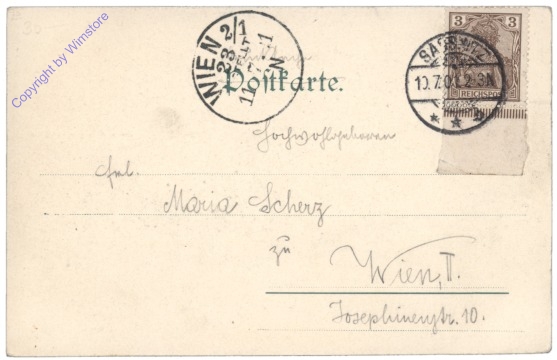 30
Copyright by Wimstore
3 3
REICHSPOST
SASSNITZ
10.7.01.2-3N
WIEN 2/1
Postkarte.
Hochwohlgeboren
Frl.
Maria Scherz
zu
Wien, II.
Josephinenstr. 10.